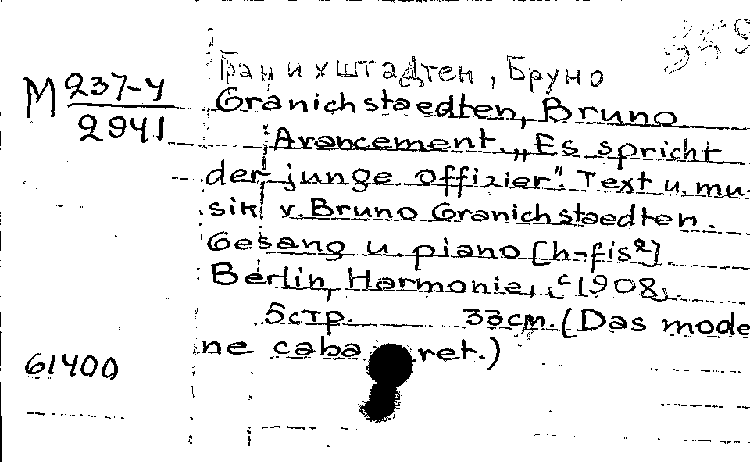 359
Гранихштадтен, Бруно
М 237-4
2941
Granichstaedten, Bruno
Avancement. „Es spricht
der junge offizier". Text u. mu-
sik v. Bruno Granichstaedten.
Gesang u. piano [h-fis²].
Berlin, Harmonie, c 1908.
5стр. 33cm. (Das moder
ne cabaret.)
61400